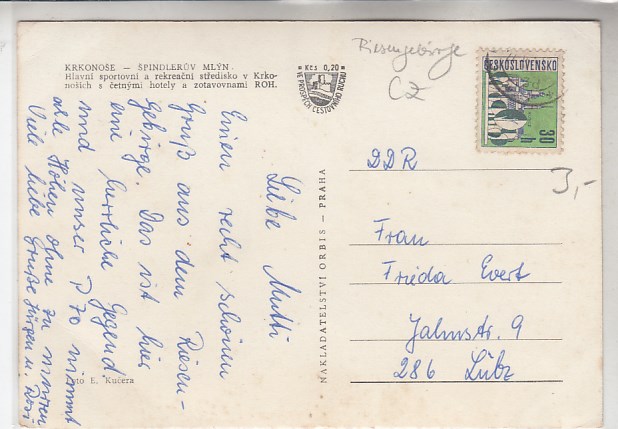 KRKONOŠE — ŠPINDLERŮV MLÝN.
Hlavní sportovní a rekreační středisko v Krko-
noších s četnými hotely a zotavovnami ROH.
Kčs 0,20
VE PROSPĚCH CESTOVNÍHO RUCHU
Riesengebirge
CZ
ČESKOSLOVENSKO
30
h
3,-
Liebe Mutti
Einen recht schönen
Gruß aus dem Riesen-
gebirge. Das ist hier
eine herrliche Gegend
und unser P 70 nimmt
alle Höhen ohne zu murren
Viele liebe Grüße Jürgen u. Rosi
Foto E. Kučera
NAKLADATELSTVÍ ORBIS — PRAHA
DDR
Frau
Frieda Evert
Jahnstr. 9
286 Lübz